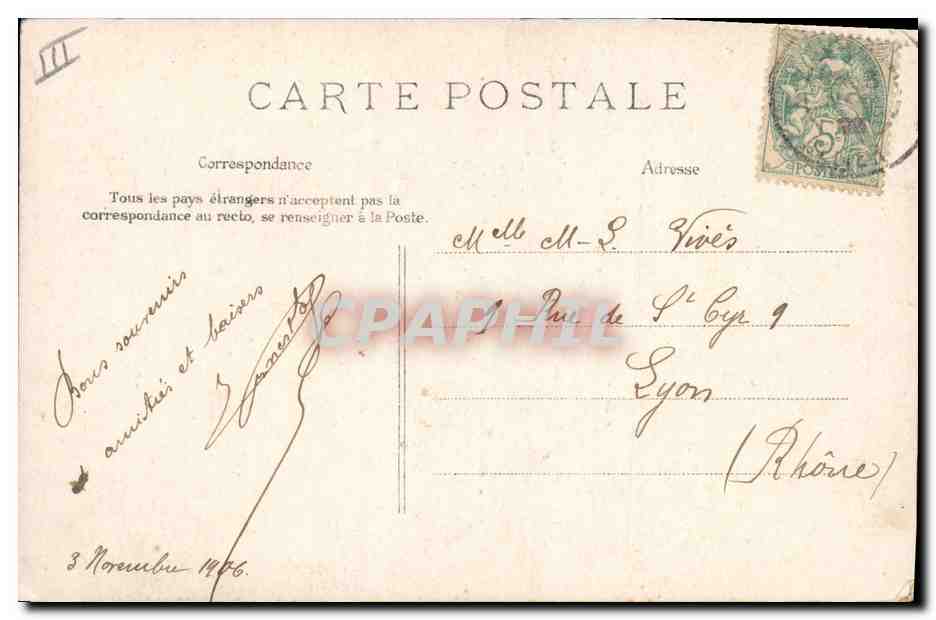 III
CARTE POSTALE
Correspondance
Adresse
Tous les pays étrangers n'acceptent pas la
correspondance au recto, se renseigner à la Poste.
5c
POSTES
Mlle M-L Vivés
9 Rue de St Cyr 9
Lyon
(Rhône)
Bons souvenirs
amitiés et baisers
3 Novembre 1906.
CPAPHIL